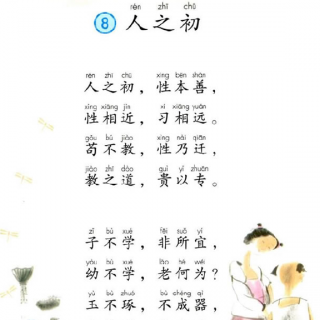 rén zhī chū
8 人之初
rén zhī chū xìng běn shàn
人之初，性本善，
xìng xiāng jìn xí xiāng yuǎn
性相近，习相远。
gǒu bú jiào xìng nǎi qiān
苟不教，性乃迁，
jiào zhī dào guì yǐ zhuān
教之道，贵以专。
zǐ bù xué fēi suǒ yí
子不学，非所宜，
yòu bù xué lǎo hé wéi
幼不学，老何为？
yù bù zhuó bù chéng qì
玉不琢，不成器，